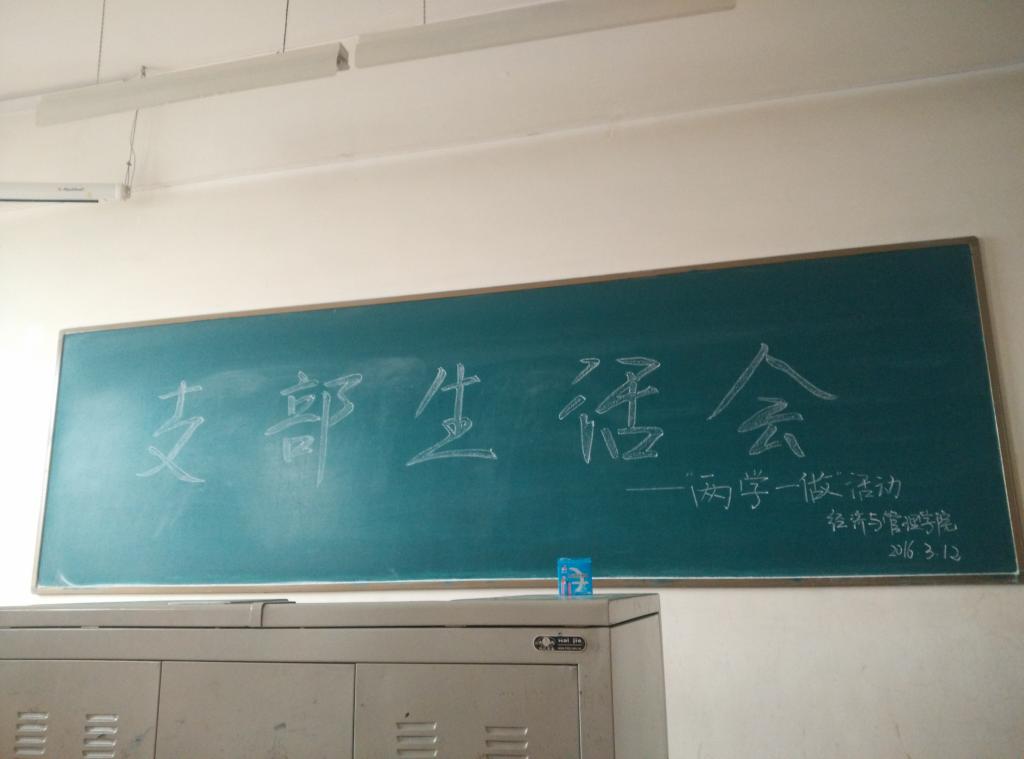 支部生活会
——“两学一做”活动
经济与管理学院
2016 3.12
Hai jia